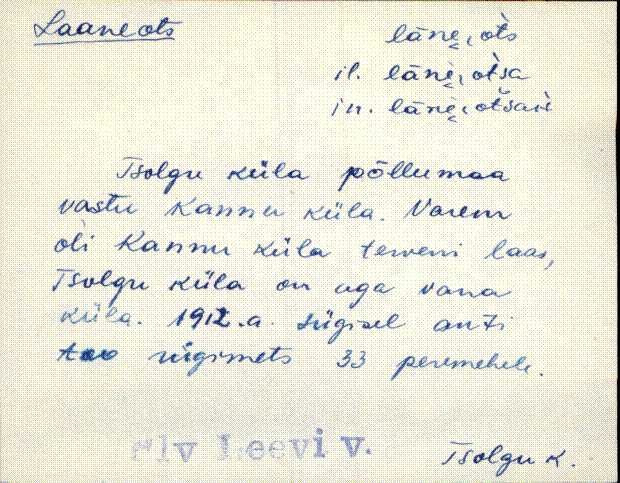 Laaneots
läne̬, ots
il. läne̬, otsa
in. läne̬, otsan
Tsolgu küla põllumaa
vastu Kannu küla. Varem
oli Kannu küla terveni laas,
Tsolgu küla on aga vana
küla. 1912. a. sügisel anti
riigimets 33 peremehele.
Leevi v.
Tsolgu k.